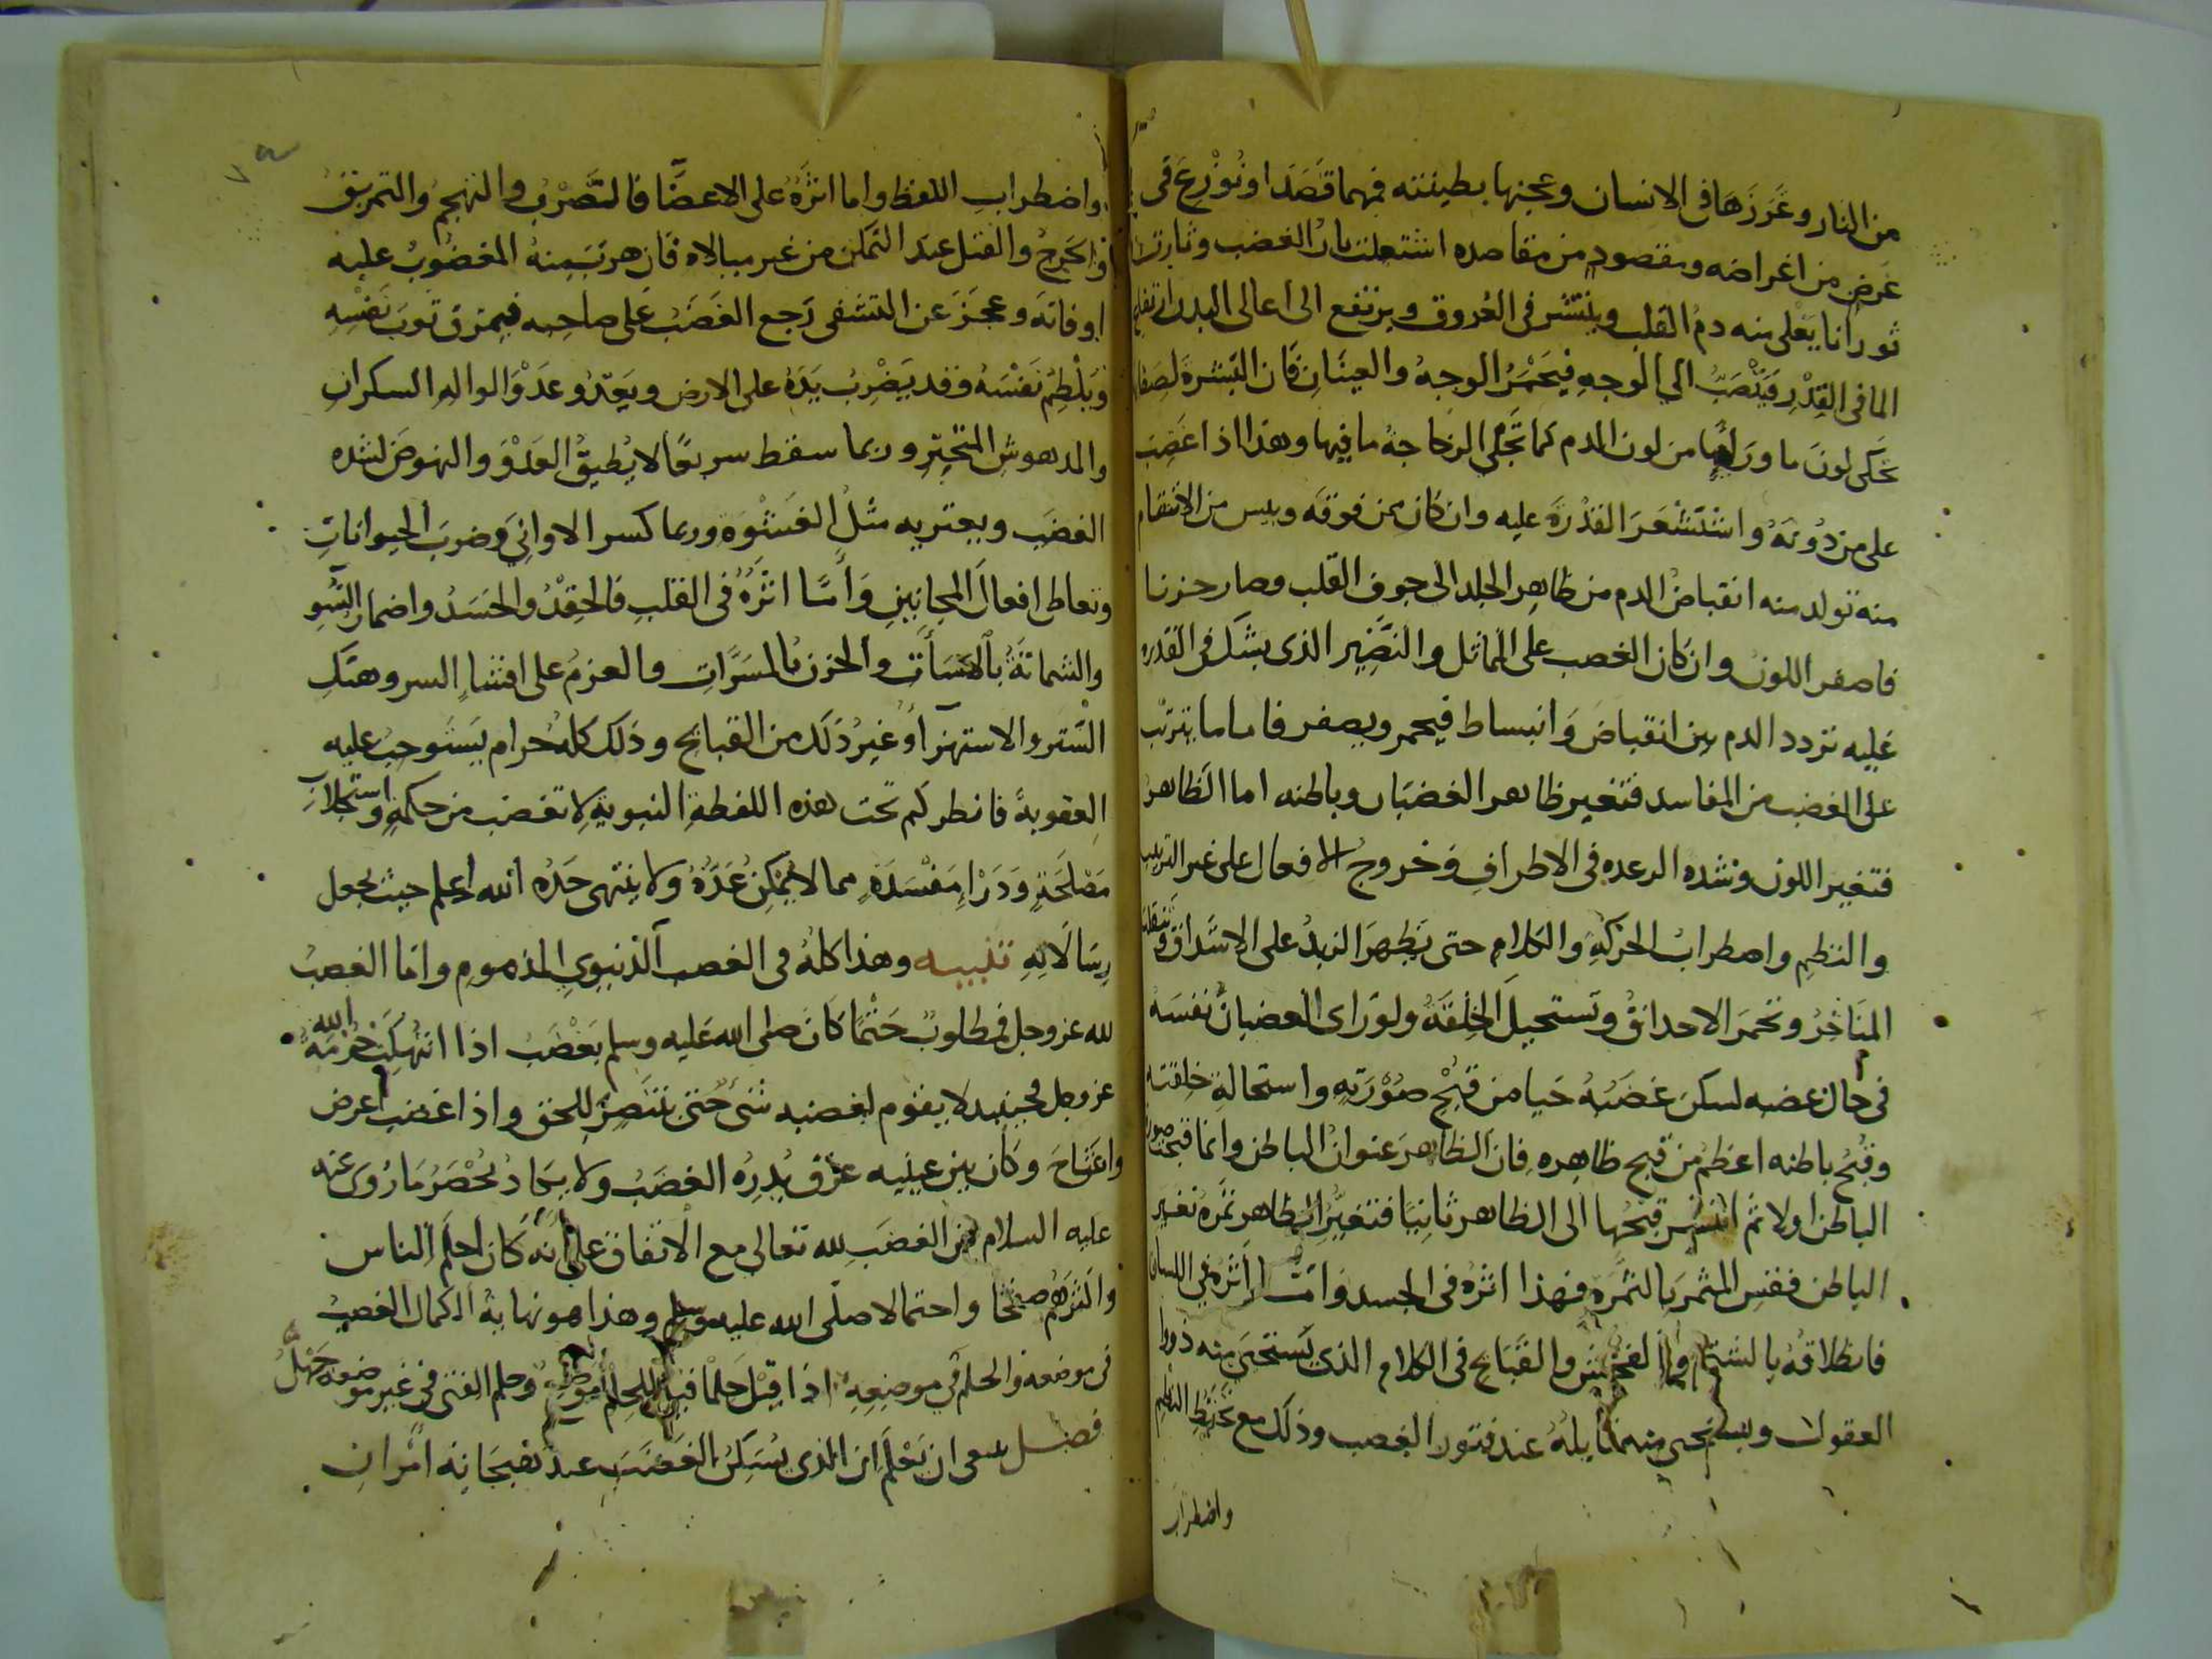 من النار وغَرَزَهَا فى الانسان وعجنها بطينته فمهما قَصَدَ او نُوزِعَ فى
غَرَضٍ من اغراضه ومقصودٍ من مقاصده اشتعلت نارُ الغضب وثارت
ثورانا يَغلى منه دمُ القلب وينتشر فى العُروق ويرتفع الى اعالى البدن ارتفاع
الما فى القِدْرِ فَيَنْصَبُّ الي الوجهِ فيَحْمَرُّ الوجهُ والعينَانِ فَان البَشرةَ لصفا
تحكى لونَ ما ورَاها من لون الدم كما تحكي الزجاجةُ ما فيها وهذا اذا غَضِبَ
على من دُونَهُ واسْتَشْعَرَ القُدْرَةَ عليه وان كان ممن فوقَه ويىس من الانتقام
منه تولد منه انقباضُ الدم من ظاهِرِ الجلد الى جوفِ القلب وصار حزنا
فاصفر اللونُ وان كان الغصب على المماثل والنَّضِيرِ الذى يشك فى القدره
عَليه تردد الدم بين انقباضَ وَانبساط فيحمر ويصفر فاما ما يترتب
على الغضب من المفاسد فتغير ظاهر الغضبَان وباطنه اما الظاهرُ
فتغير اللون وشده الرعده فى الاطرافِ وَخروج الافعال على غير الترتيب
والنظمِ واضطرابُ الحركَةِ والكلامِ حتى يَظهرَ الزبدُ على الاشداق وتنقلب
المنَاخِرُ وتحمرَ الاحداقُ وتَستحيلَ الخِلْقَهُ ولو رَاى الغضبانُ نفسَهُ
فى حال غضبه لسكنَ غضَبُهُ حَيا من قبْحِ صُوْرَتِهِ واستحالةِ خلقته
وقبْحُ باطنه اعظمُ من قبح ظاهِرهِ فان الظاهرَ عنوانُ الباطن وانما قبحت صورة
الباطن اولا ثم انتشر قبحُها الى الظاهر ثانيًا فتغيُّر الظاهر ثمرة تغير
الباطن فقس المثمرَ بالثمَرهِ فهذا اثرُهُ فى الجسد وَامّا اثرُه في اللسان
فانطلاقُهُ بالشتم والفحش والقَبَايح فى الكلام الذى يستحي منه ذووا
العقول ويستحى منه قايلُهُ عند فتور الغصب وذلك مع تخبّط النظم
واضطراب
واضطرابِ اللفظ واما اثرُهُ على الاعضَا فالضَّرْبُ والتهجمُ والتمزيقُ
والجرحُ والقتل عند التمكن من غير مبالاه فان هربَ منهُ المغضوبُ عليه
او فاتَهُ وعجزَ عَن التشفى رَجع الغَضَبُ عَلى صاحِبه فيمزق ثوبَ نَفْسِهِ
ويَلْطِمُ نَفْسَهُ وقد يَضْرِبُ يَدَهُ على الارض ويَعدُو عَدْوَ الوالهِ السكران
والمدهوشِ المتحيِّرِ وربما سقط سريعًا لا يُطيقُ العَدْوَ والنهوضَ لشده
الغضَب ويعتريه مثلُ الغَشْوَةِ وربما كسر الاوانِيَ وضربَ الحيواناتِ
وتعاطى افعالَ المجانِينِ وَأَمَّا اثرُهُ فى القلبِ فالحِقْدُ والحَسَدُ واضمار السُّوِ
والشماتةُ بالمسَآت والحزن بالمسَرَّاتِ والعزمُ على افشاِ السر وهتك
السّتر والاستهزآ وغيرُ ذلك من القبايح وذلك كلُهُ حرام يَستوجبُ عليه
العقوبةَ فانظر كم تحت هذه اللفظةِ النبويةِ لا تغضب من حكمةٍ واستجلابِ
مَصْلَحَةٍ وَدَرْاءِ مَفْسَدَةٍ مما لا يُمكِنُ عَدَّهُ ولا ينتهى حَدُّه الله اعلم حيث يجعل
رِسَالاتِهِ تنبيه وهذا كلُهُ فى الغصب الدُنيوي المذموم وامّا الغصبُ
لله عز وجل فمطلوبٌ حَتْمًا كان صلى الله عَليه وسلم يَغْضَبُ اذا انتُهِكَتْ حُرْمَةُ الله
عز وجل فحينيد لا يقوم لغضبه شىءٌ حتى ينتصِرَ للحق واذا غضب اعرض
واشَاحَ وكان بين عينيه عرْق يُدِرُهُ الغضَبُ ولا يكادُ يُحْصَرُ مَا رُوىَ عنه
عليه السلام من الغضَبِ لله تعالى مع الاتفاق على أنَّهُ كان احلَمَ الناس
واكثرَهُم صَفْحًا واحتمالا صلّى الله عليه وسلم وهذا هو نهايةُ الكمال الغصبُ
فى موضعه والحلمُ في موضِعِهِ اذا قِيْلَ حِلْمًا قيل للحِلْمِ مَوْضِعٌ وحلم الفتى فى غير موضعه جَهْلُ
فصل ينبغى ان يَعْلَمَ ان الذى يُسَكِنُ الغَضَبَ عند هَيَجَانِه امْرانِ